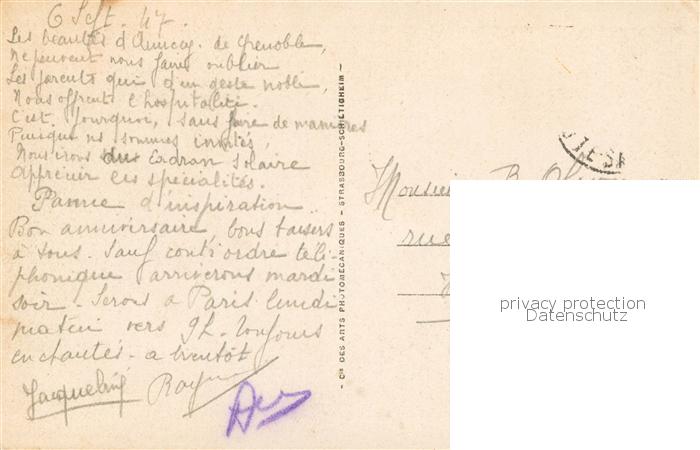 6 Sept. 47.
Les beautés d'Annecy, de Grenoble,
Ne peuvent nous faire oublier
Les parents qui d'un geste noble,
Nous offrent l'hospitalité.
C'est pourquoi, sans faire de manières
Puisque ns sommes invités,
Nous irons Cadran Solaire
Apprécier les spécialités.
Panne d'inspiration
Bon anniversaire, bons baisers
à tous. Sauf contrordre télé-
phonique arriverons mardi
soir. Serons à Paris lundi
matin vers 9h. Toujours
enchantés. a bientôt
Jacqueline
Cie DES ARTS PHOTOMÉCANIQUES - STRASBOURG-SCHILTIGHEIM -
Monsieur
rue
privacy protection
Datenschutz